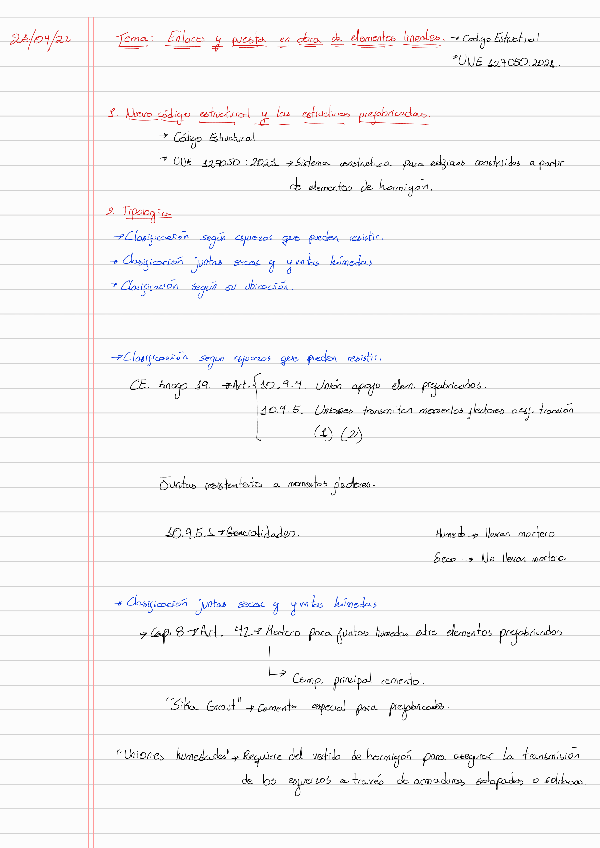 26/04/22 Tema: Enlace y puesta en obra de elementos lineales. → Código Estructural
* UNE 127050:2021.
1. Nuevo código estructural y las estructuras prefabricadas.
* Código Estructural
* UNE 127050:2021 → Sistema constructivo para edificios construidos a partir
de elementos de hormigón.
2. Tipología
→ Clasificación según esfuerzos que pueden resistir.
→ Clasificación juntas secas y juntas húmedas
* Clasificación según su ubicación.
→ Clasificación según esfuerzos que pueden resistir.
CE. Anejo 19. → Art. { 10.9.4. Unión apoyo elem. prefabricados.
10.9.5. Uniones transmitan momentos flectores o esf. tracción
(1) (2)
Juntas resistentes a momentos flectores.
10.9.5.1 → Generalidades. Humedo → llevan mortero
Seco → No llevan mortero
→ Clasificación juntas secas y juntas húmedas
→ Cap. 8 → Art. 42 → Mortero para juntas humedas entre elementos prefabricados
↳ Comp. principal cemento.
"Sika Grout" → Cemento especial para prefabricados.
"Uniones humedades" → Requiere del vertido de hormigón para asegurar la transmisión
de los esfuerzos a través de armaduras solapadas o soldadas